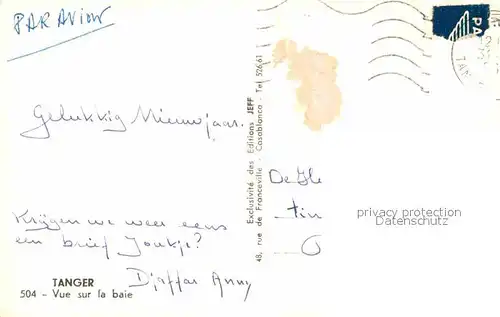 PAR AVION
Gelukkig Nieuwjaar.
Krijgen we weer eens
een brief Joukje?
Djaffar Anny
TANGER
504 - Vue sur la baie
Exclusivité des Editions JEFF
48, rue de Franceville - Casablanca - Tel 526.61
De
tin
privacy protection
Datenschutz
PA
TAN